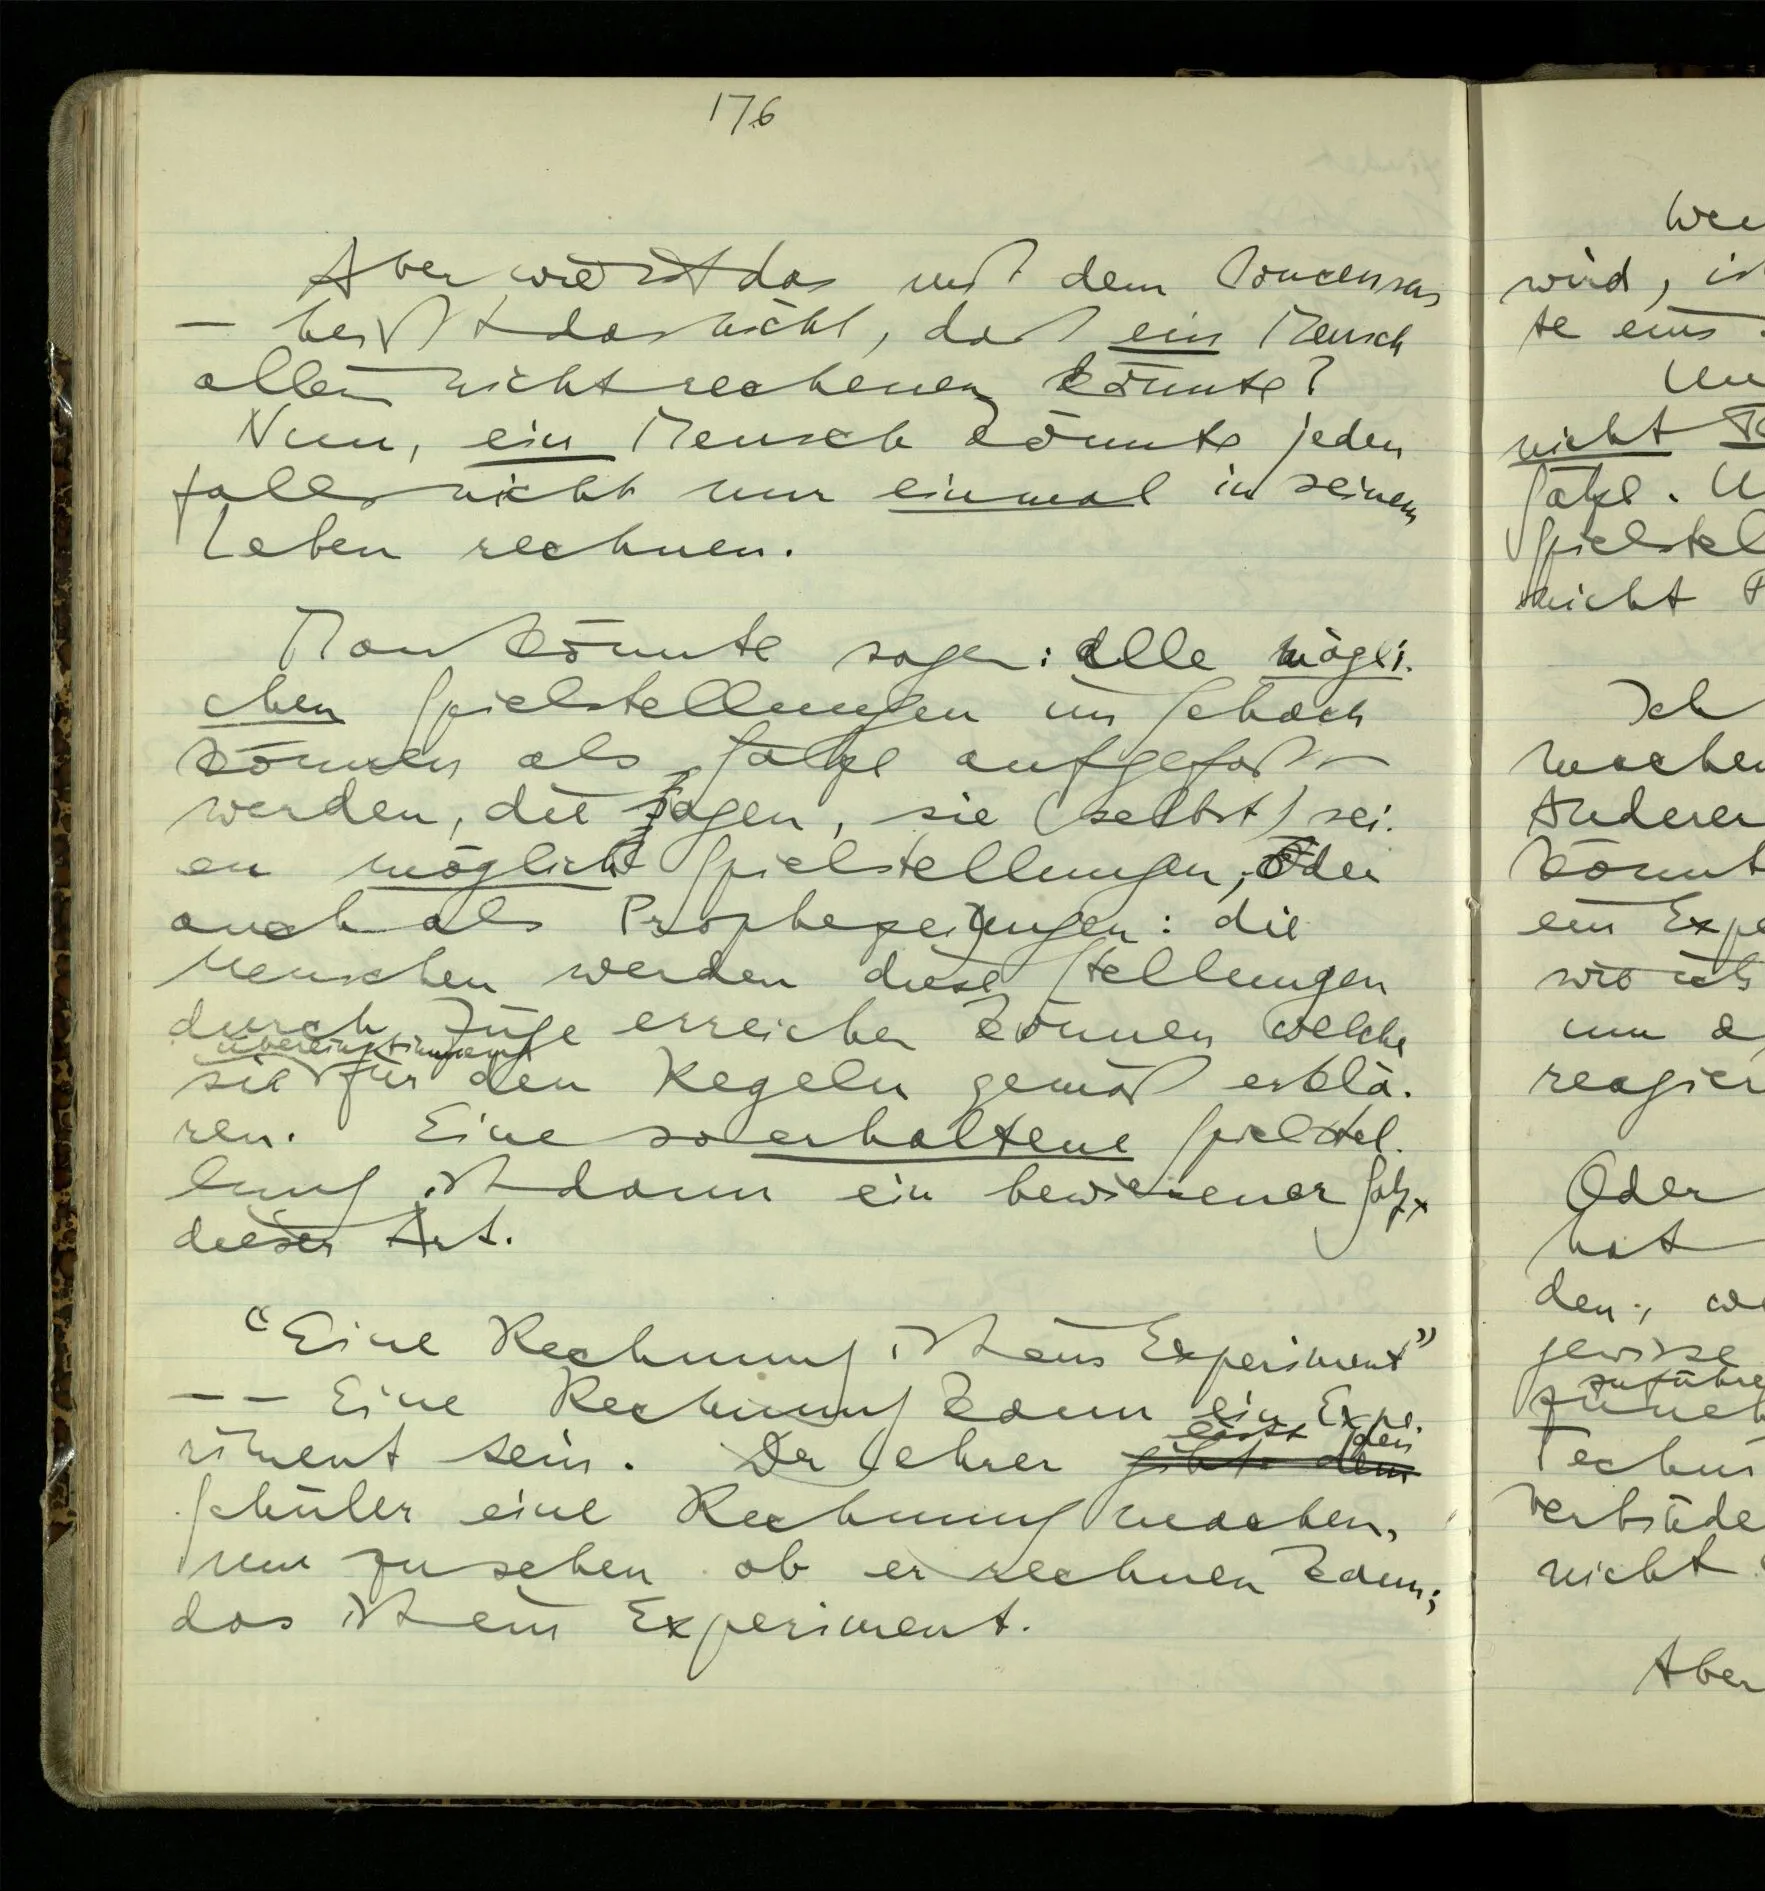 176
Aber wie ist das mit dem Concensus
– heißt das nicht, daß ein Mensch
allein nicht rechenen könnte?
Nun, ein Mensch könnte jeden
falls nicht nur einmal in seinem
Leben rechnen.
Man könnte sagen: alle mögli-
chen Spielstellungen im Schach
können als Sätze aufgefaßt
werden, die sagen, sie (selbst) sei-
en mögliche Spielstellungen, oder
auch als Prophezeiungen: die
Menschen werden diese Stellungen
durch Züge erreichen können welche
übereinstimmend
sie für den Regeln gemäß erklä-
ren. Eine so erhaltene Spielstel-
lung ist dann ein bewiesener Satz
dieser Art.
“Eine Rechnung ist ein Experiment”
– – Eine Rechnung kann ein Expe-
riment sein. Der Lehrer gibt dem
läßt den
Schüler eine Rechnung machen,
um zu sehen ob er rechnen kann;
das ist ein Experiment.
wird, is
te eins
nicht
Sätze. U
Spielstel
nicht P
Ich
machen
Anderer
könnt
ein Expe
wie ich
um
reagier
Oder
hat
den, we
gewisse
zuführe
Techni
nicht
Aber